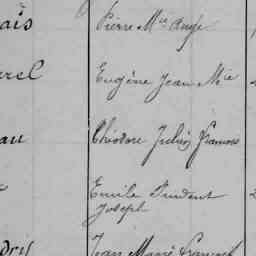 ais Pierre Mie Ange
rel Eugène Jean Mie
au Théodore Julien François
Emile Prudent
Joseph
dry Jean Marie François